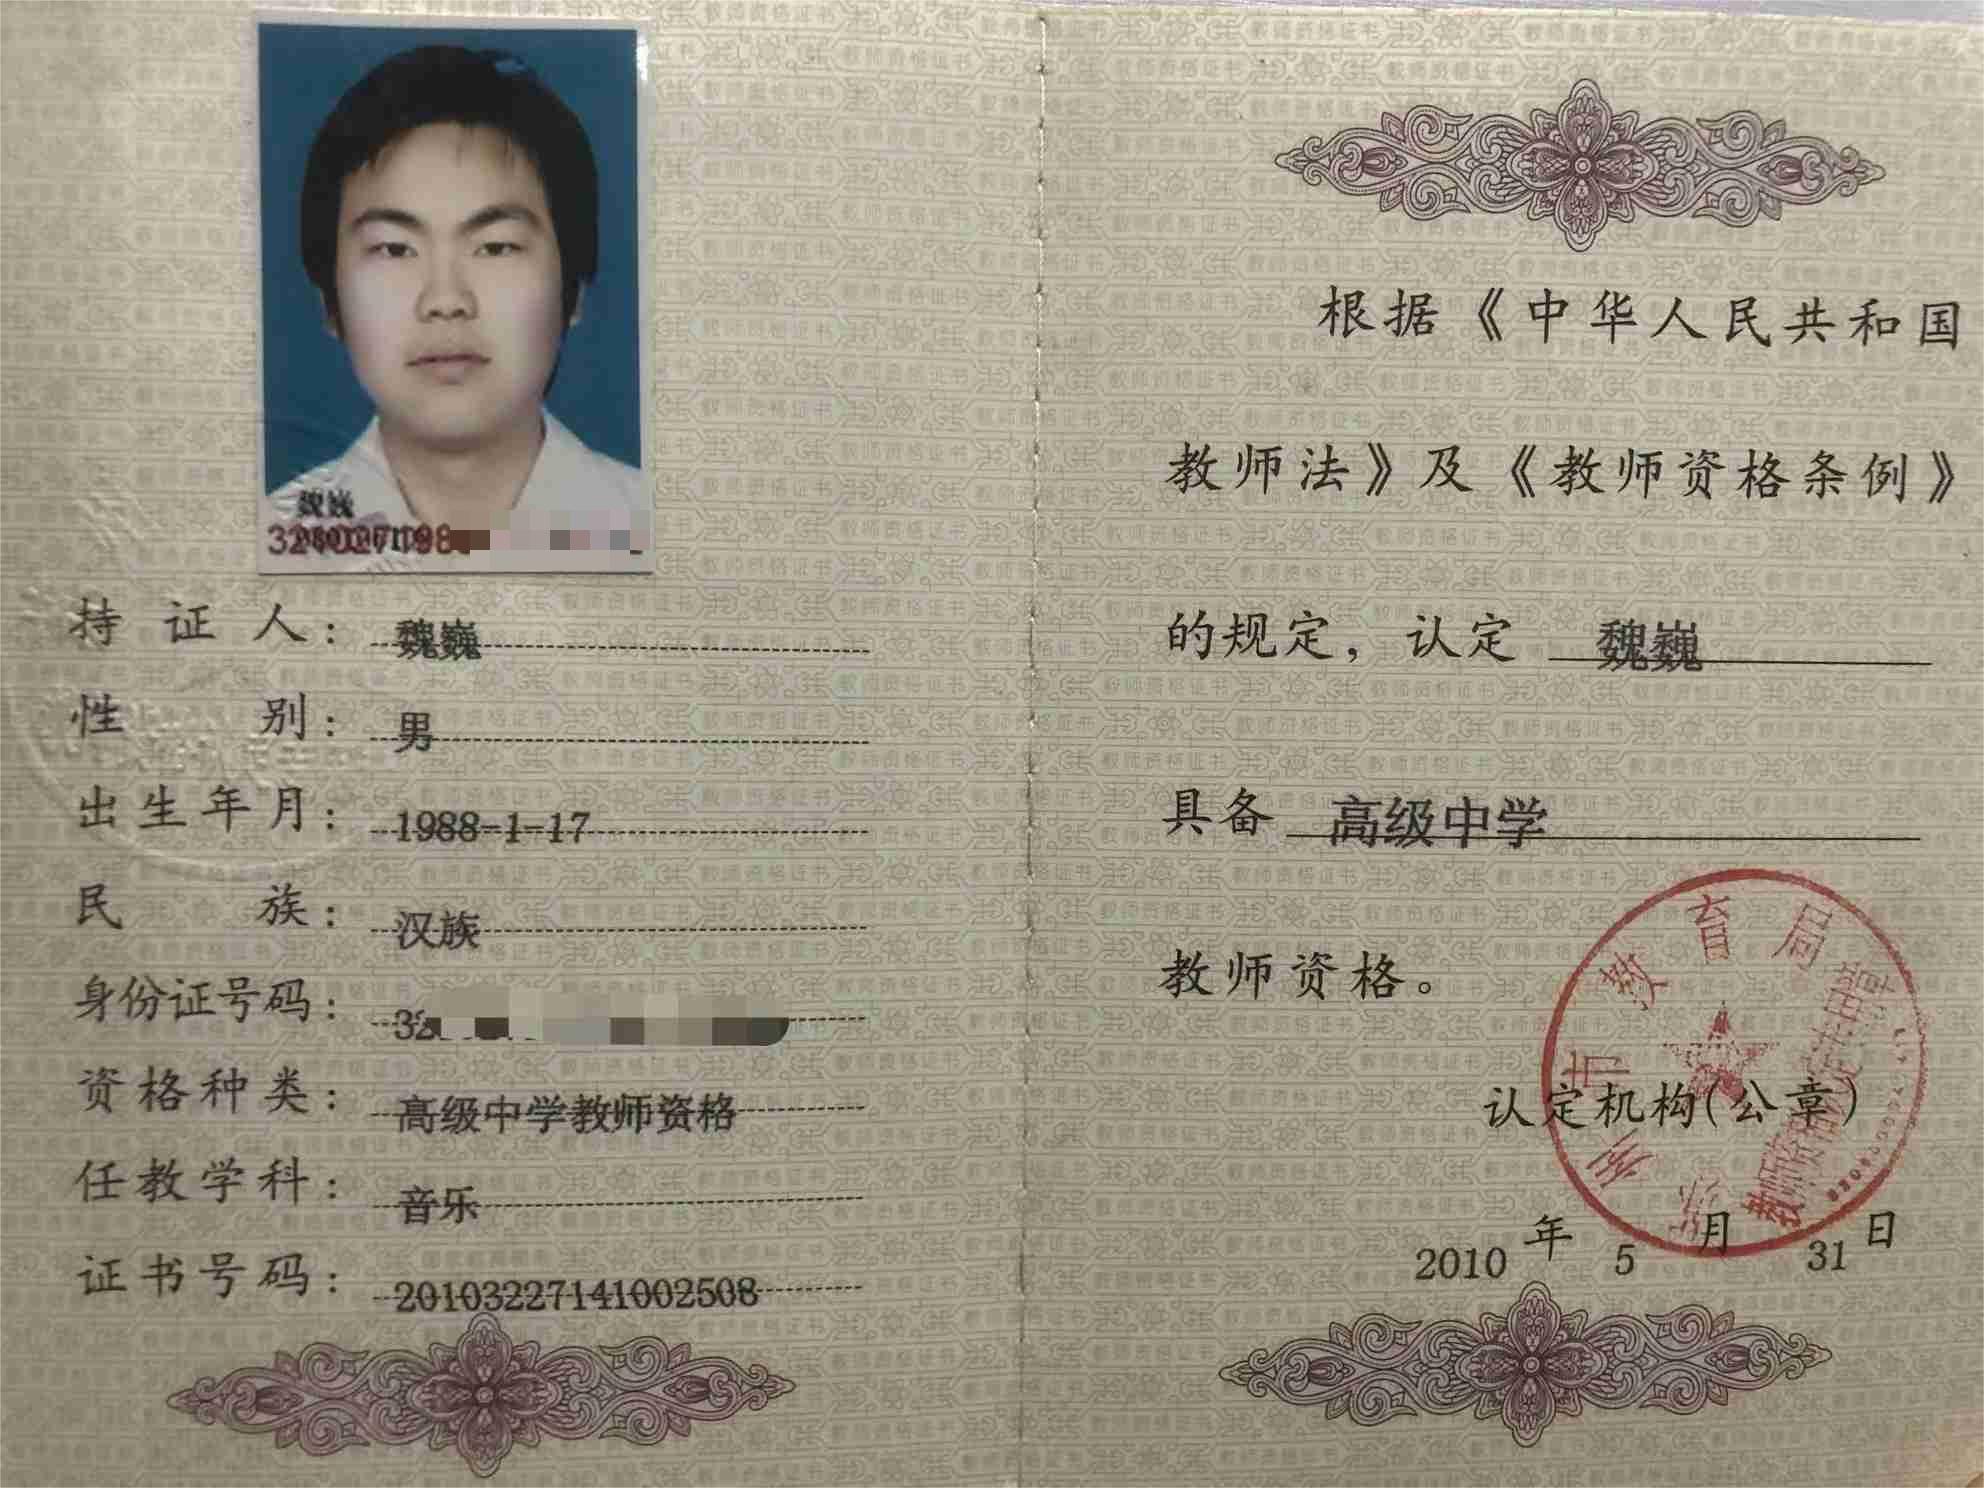 魏巍
持证人： 魏巍
性别： 男
出生年月： 1988-1-17
民族： 汉族
身份证号码： 32
资格种类： 高级中学教师资格
任教学科： 音乐
证书号码： 20103227141002508
根据《中华人民共和国
教师法》及《教师资格条例》
的规定，认定 魏巍
具备 高级中学
教师资格。
市教育局
教师资格认定专用章
认定机构(公章)
2010年5月31日